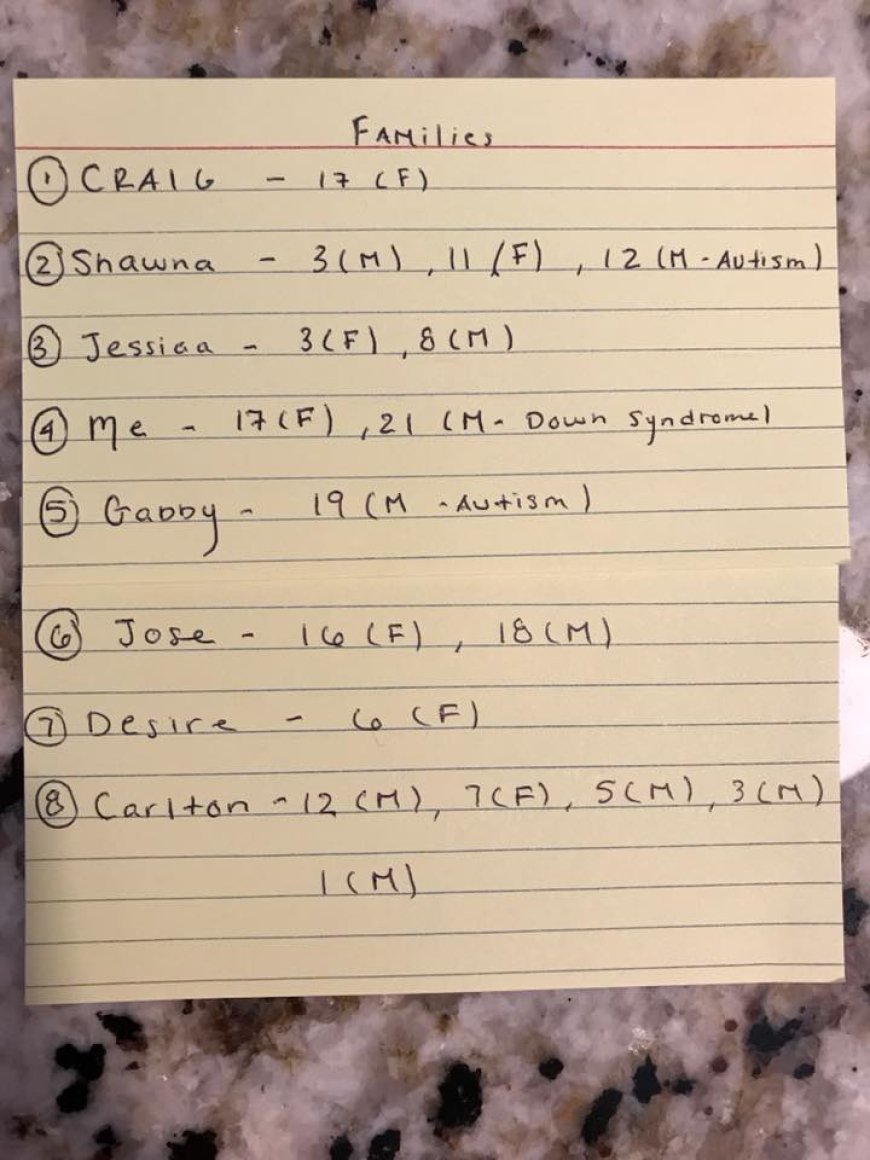 Families
① CRAIG - 17 (F)
② Shawna - 3(M), 11 (F), 12 (M - Autism)
③ Jessiaa - 3(F), 8(M)
④ Me - 17(F), 21 (M - Down Syndrome)
⑤ Gabby - 19 (M - Autism)
⑥ Jose - 16 (F), 18(M)
⑦ Desire - 6 (F)
⑧ Carlton - 12 (M), 7(F), 5(M), 3(M)
1(M)